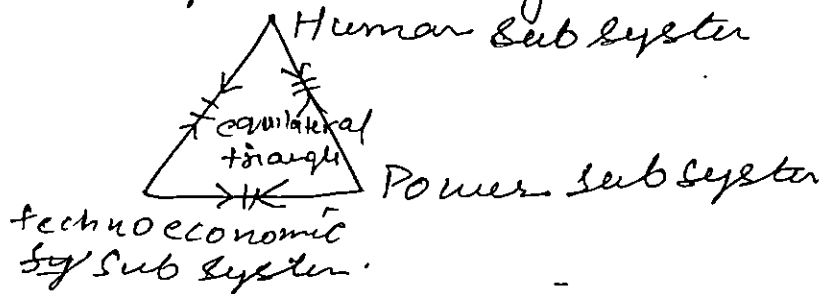 Human Subsyster
equilateral
triangle
Power subsyster
technoeconomic
sy Sub syster.